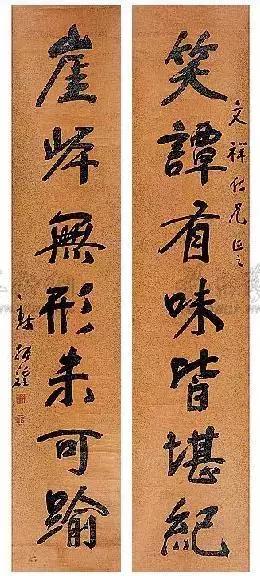 文祥兄正之
笑譚有味皆堪紀
崖岸無形未可踰